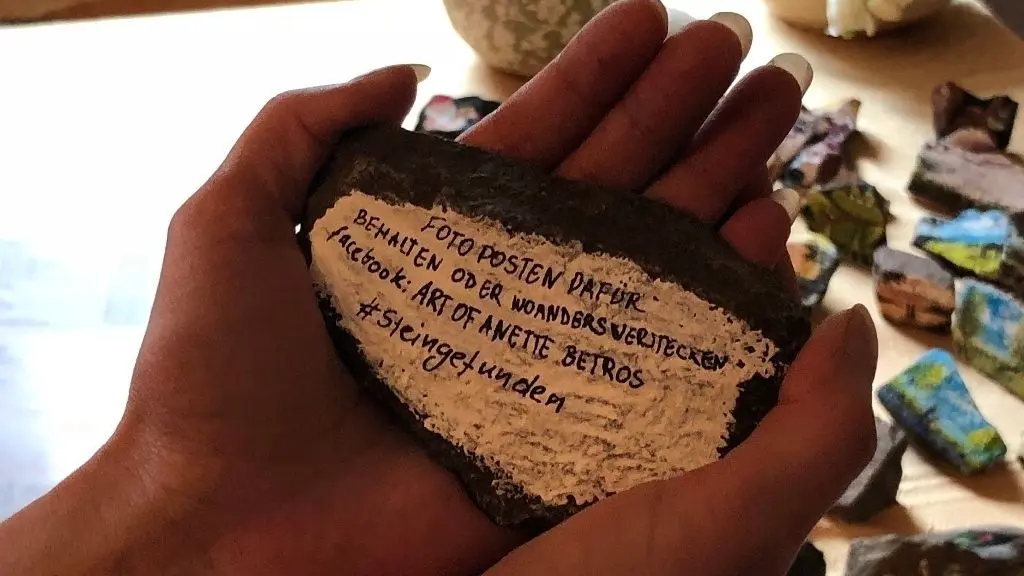 FOTO POSTEN DAFÜR
BEHALTEN ODER WOANDERS VERSTECKEN.
facebook: ART OF ANETTE BETROS
#Steingefunden